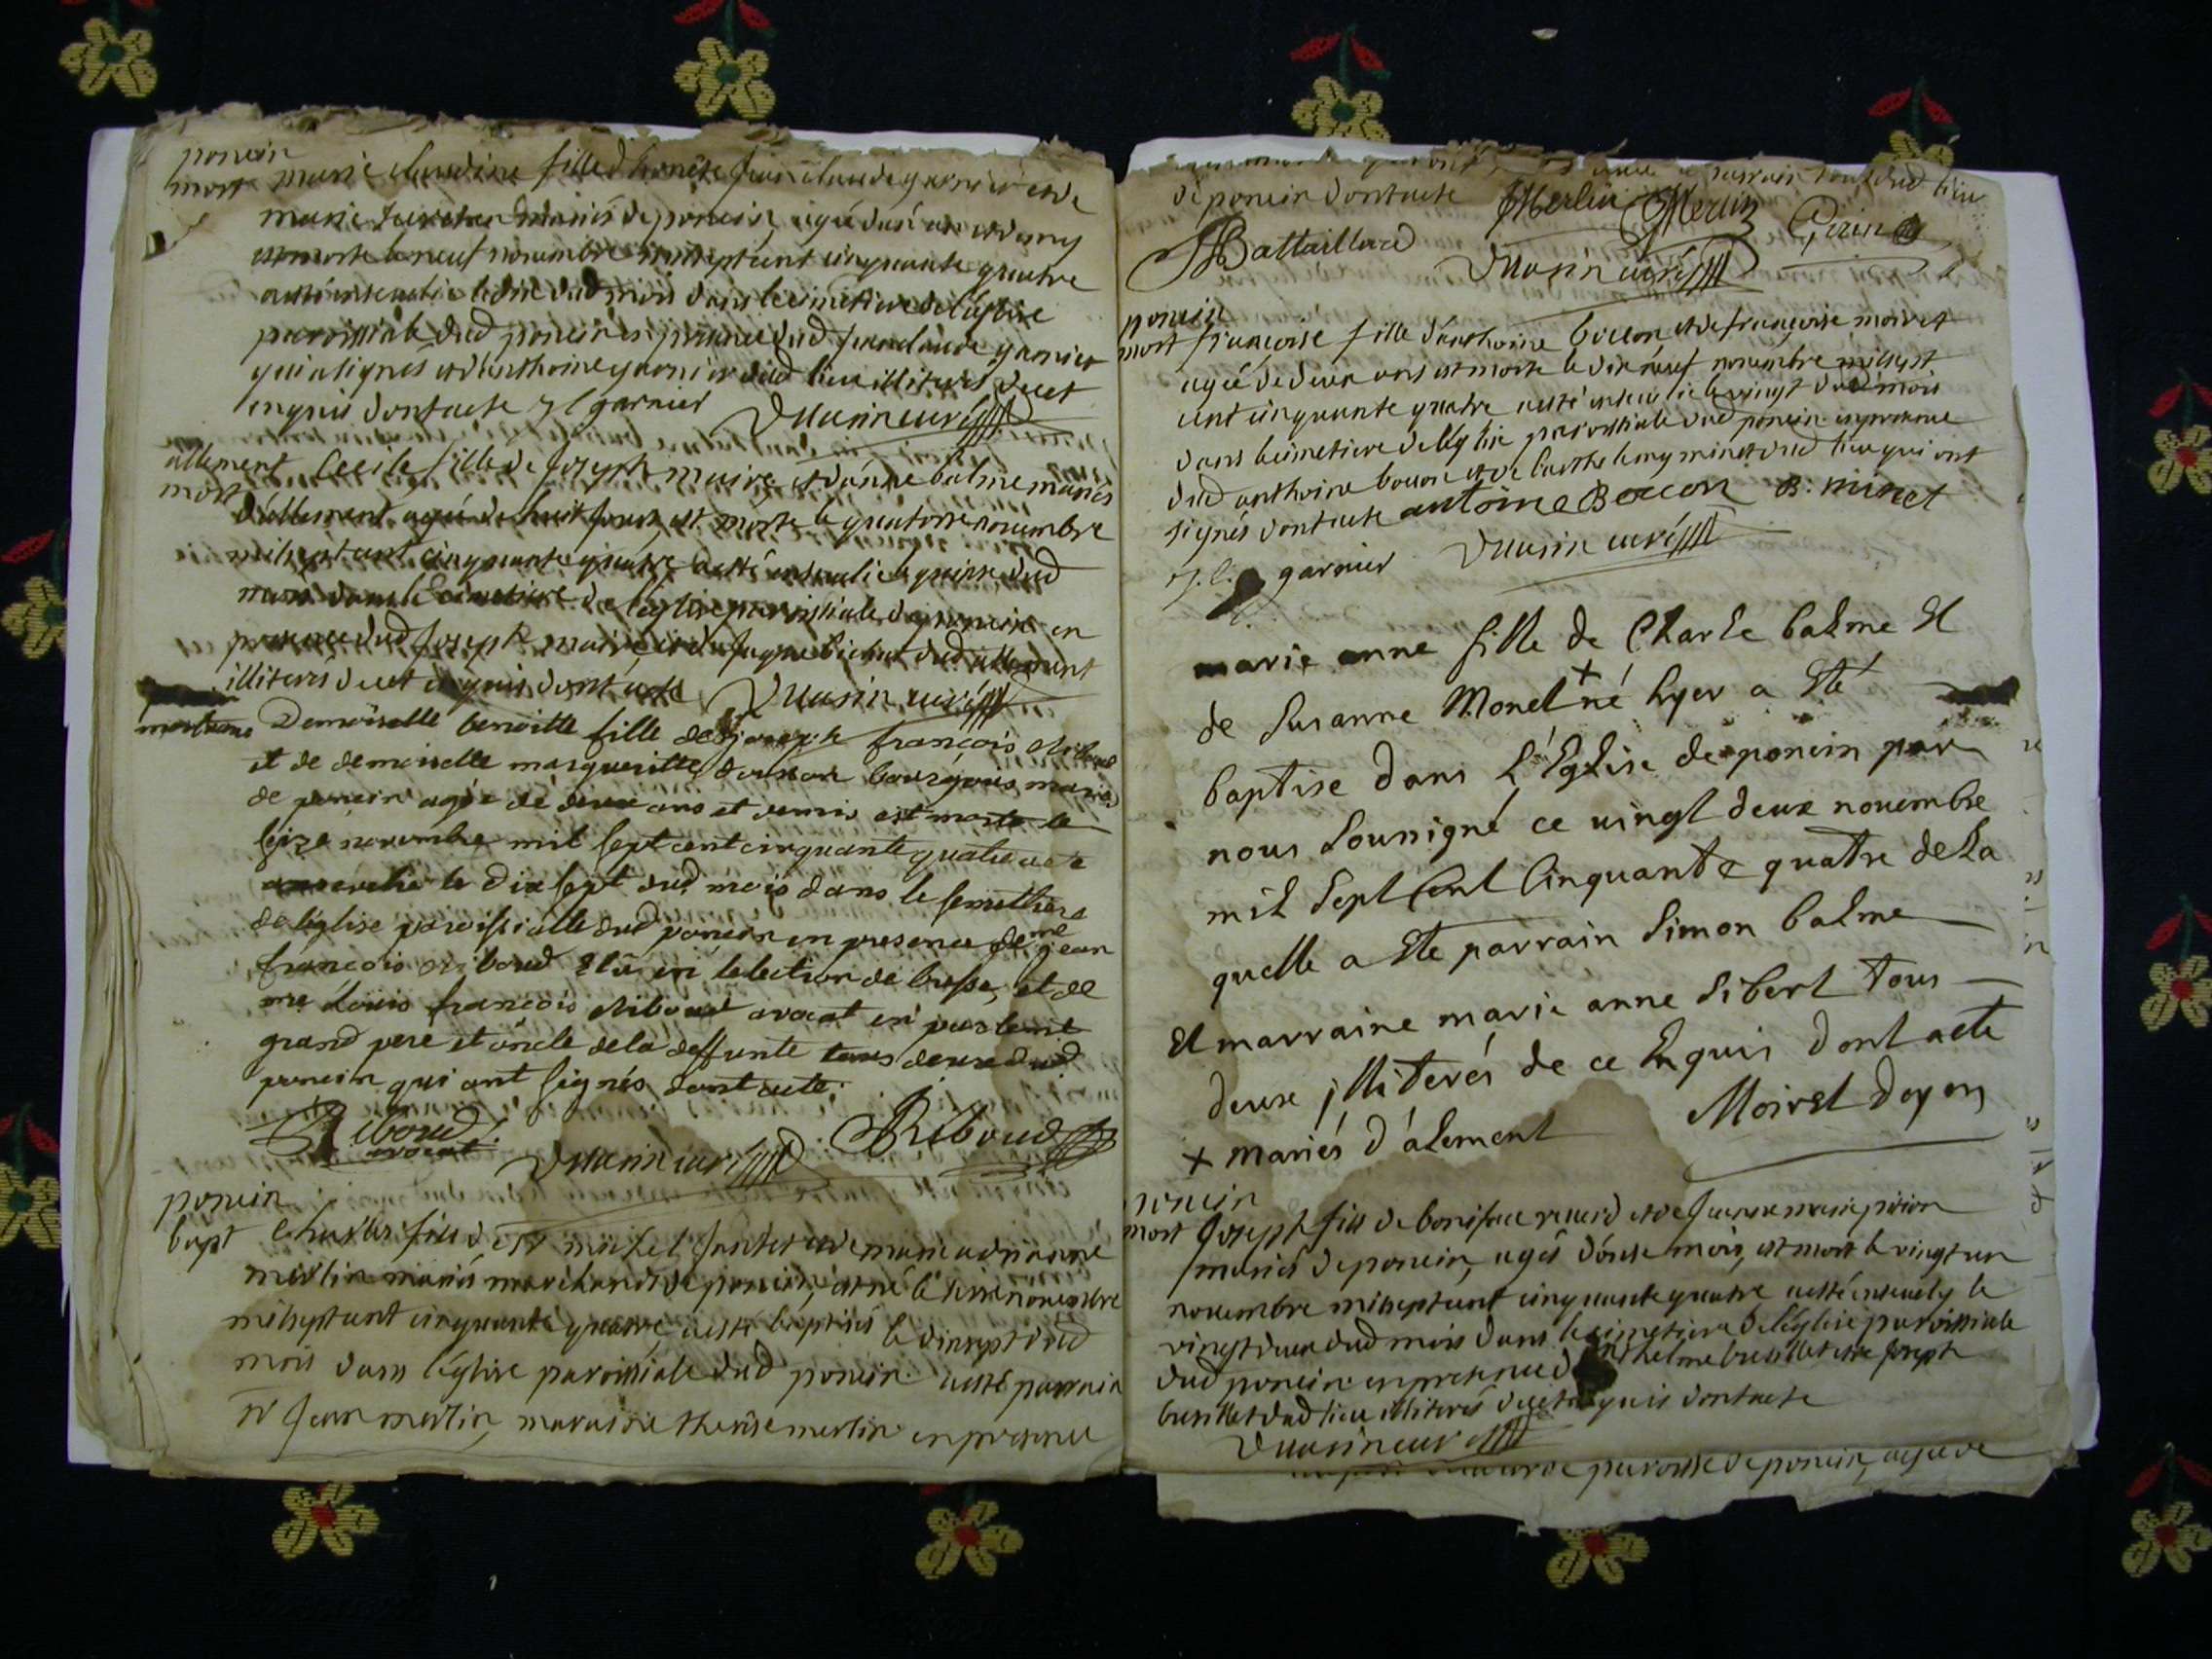 poncin
mort marie claudine fille d'honête jean claude garnier et de
marie mariés de poncin, agée d'un an et demy
est morte le neuf novembre mil sept cent cinquante quatre
a esté ensevelie le dix dud mois dans le cimetiere de l'église
paroissiale dud poncin en presence dud jean claude garnier
qui a signés et d'anthoine garnier dud lieu illiterés de cet
enquis dont acte j c garnier curé
allement
mort Cecile fille de Joseph maire et d'anne balme mariés
d'allement, agée de huit jours, est morte le quatorse novembre
mil sept cent cinquante quatre a esté ensevelie le quinse dud
mois dans le Cimetiere de l'église paroissiale de poncin en
presence dud Joseph maire, et de dud allement
illiterés de cet enquis dont acte curé
Demoiselle benoitte fille de Sr joseph françois riboud
et de demoiselle margueritte bourgeois mariés
de poncin agée de deux ans et demis est morte le
seize novembre mil sept cent cinquante quatre a ete
ensevelie le dix sept dud mois dans le semettiere
de l'église paroissialle dud poncin en presence de me jean
françois riboud Elû en l'election de bresse, et de
me Louis françois riboud avocat en parlemt
grand pere et oncle de la deffunte tous deux dud
poncin qui ont signés dont acte.
Riboud avocat curé Riboud
poncin
bapt Charles fils de Sr michel et de marie
merlin mariés marchands de poncin, est né le seise novembre
mil sept cent cinquante quatre, a esté baptisés le dix sept dud
mois dans l'église paroissiale dud poncin a esté parrain
Sr Jean merlin, marraine therese merlin en presence
dud lieu
de poncin dont acte JMerlin Merlin Gerin
Battaillard curé
poncin
mort françoise fille d'anthoine bocon et de françoise moiret
agée de deux ans est morte le dix neuf novembre mil sept
cent cinquante quatre a esté ensevelie le vingt dud mois
dans le cimetiere de l'église paroissiale dud poncin en presence
dud anthoine bocon et de barthelemy minet dud lieu qui ont
signés dont acte antoine Bocon B. minet
j. c. garnier curé
marie anne fille de Charle balme El
de Susanne Monel + né hyer a Eté
baptise dans L'Eglise de poncin par
nous Soussigné ce vingt deux novembre
mil Sept Cent Cinquante quatre de La
quelle a Ete parrain Simon balme
El marraine marie anne Sibert tous
deux jlliterés de ce Enquis dont acte
+ mariés d'alement Moiret doyen
poncin
mort Joseph fils de boniface et de Jeanne marie
mariés de poncin, agés d'onse mois, est mort le vingt un
novembre mil sept cent cinquante quatre a esté ensevely le
vingt deux dud mois dans le cimetiere de l'église paroissiale
dud poncin en presence d'anthelme et de joseph
dud lieu illiterés de cet enquis dont acte
curé
paroisse de poncin, agée de